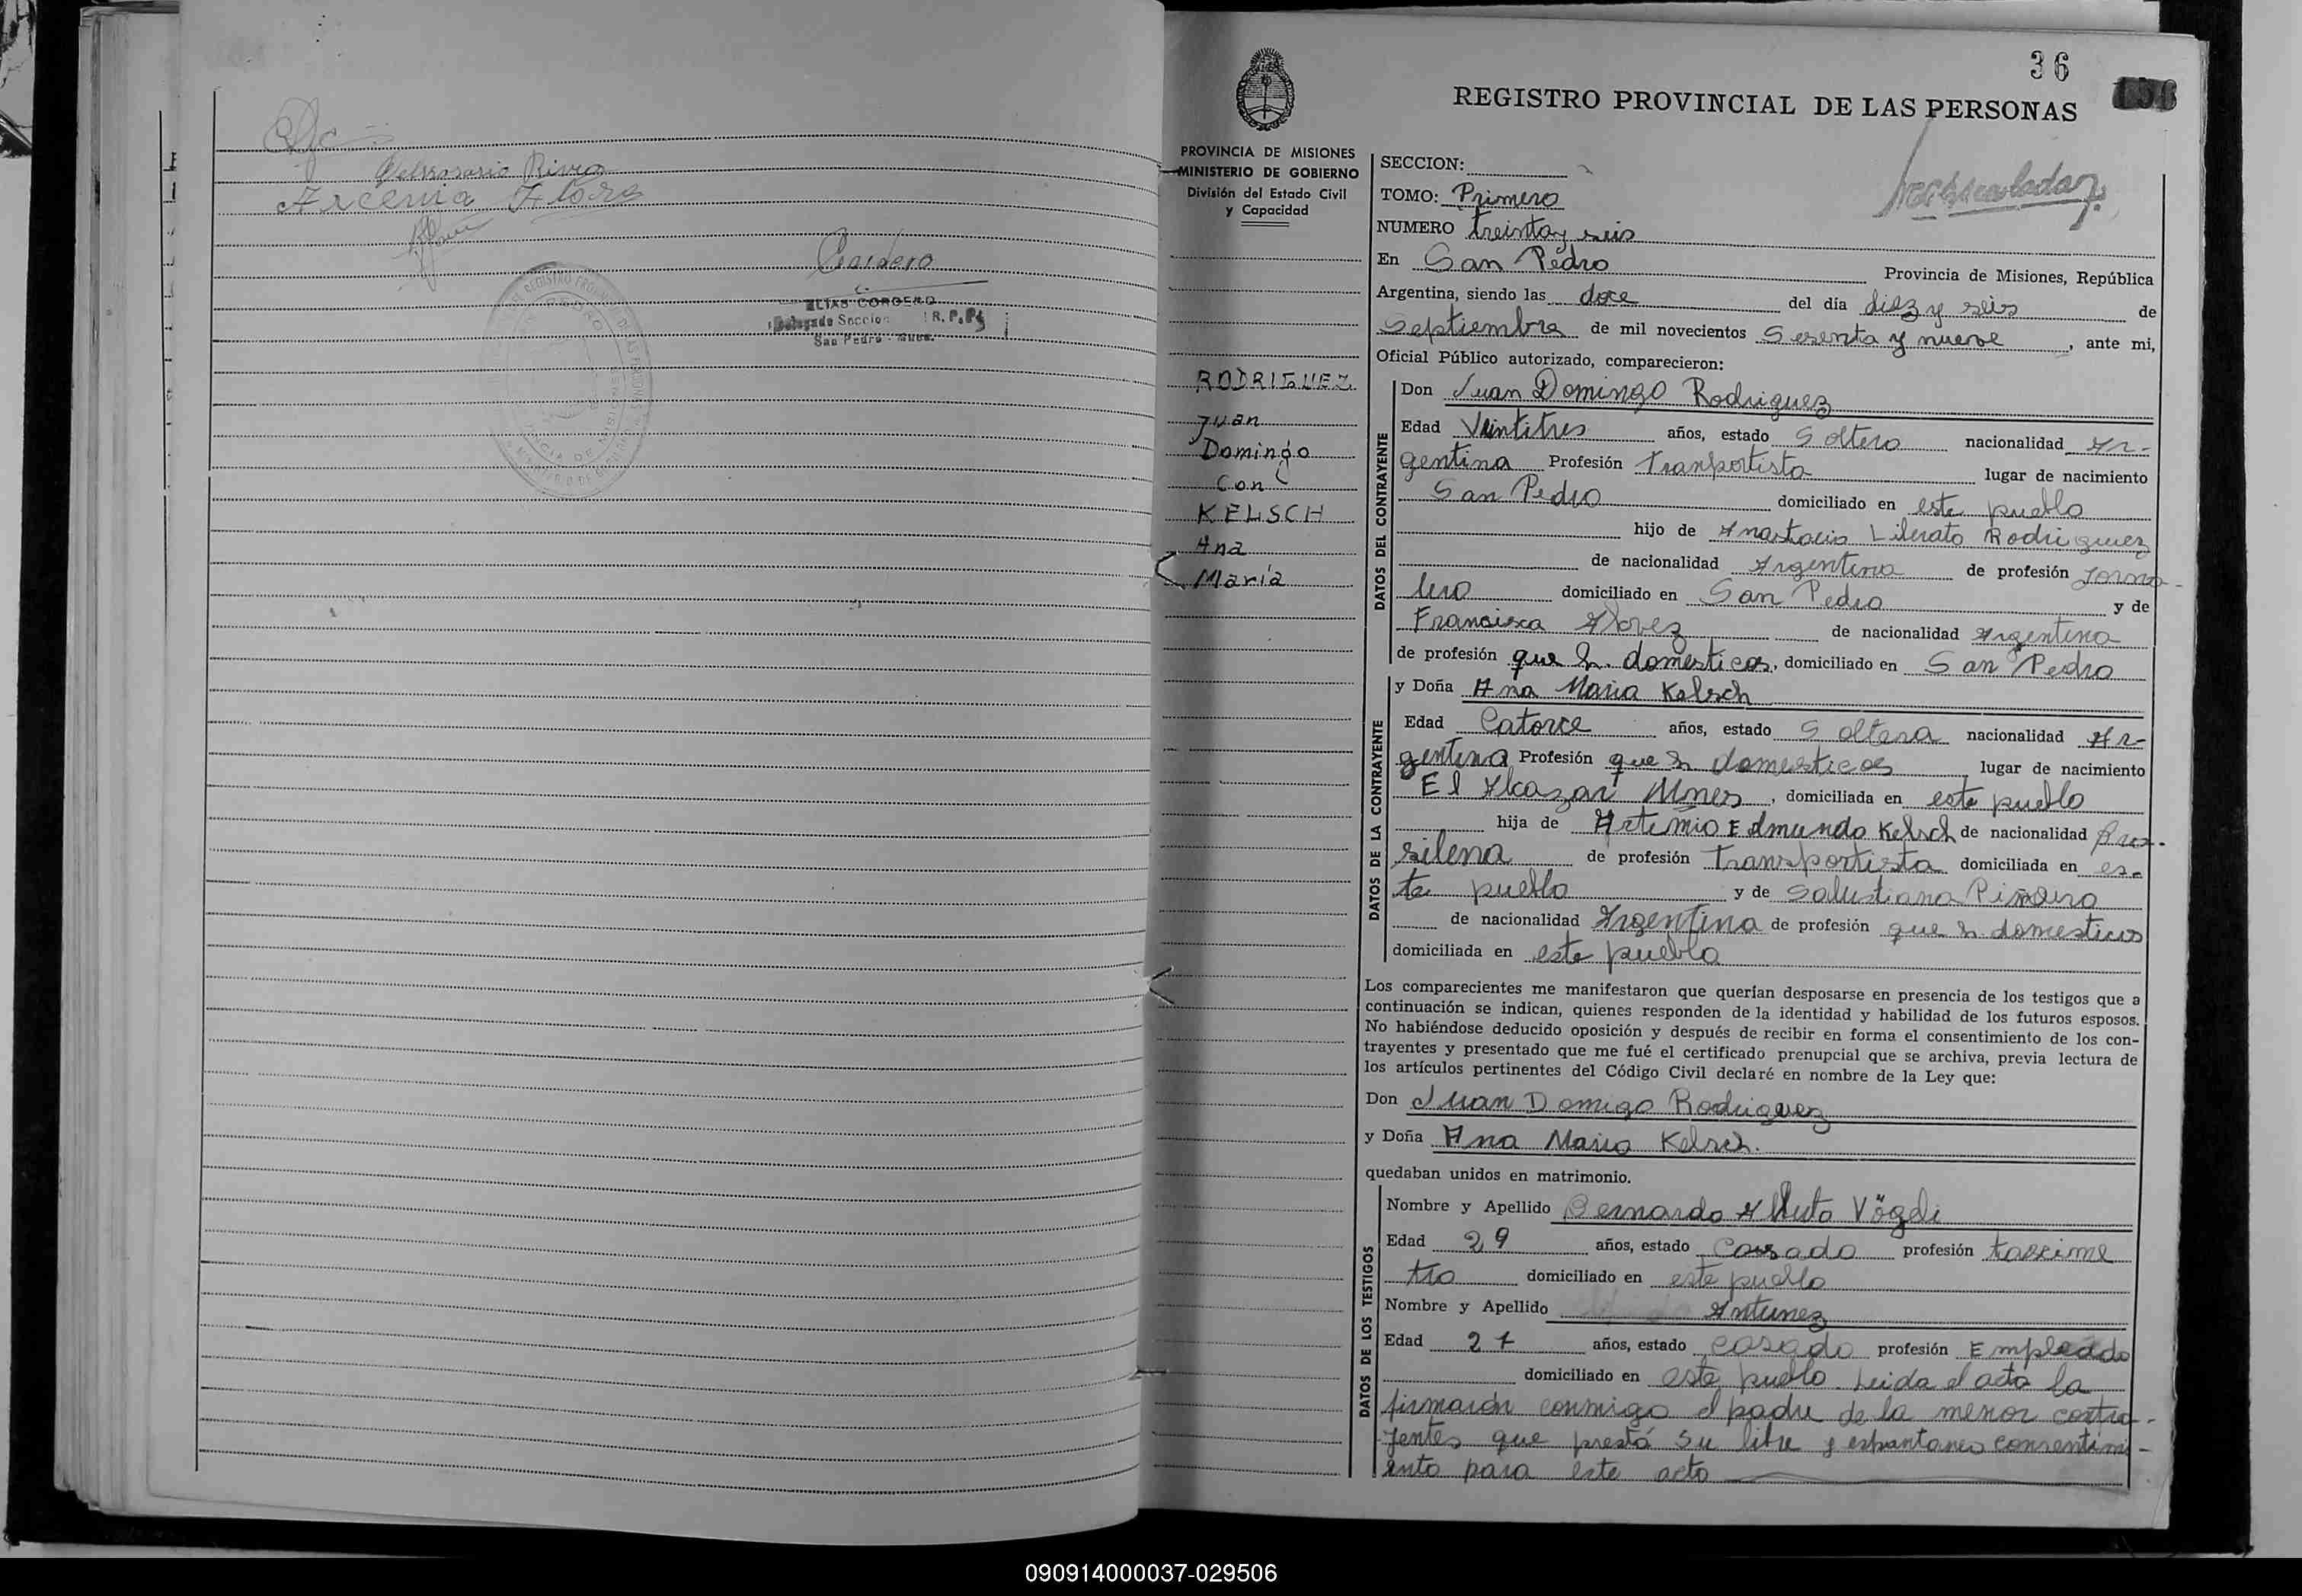 Arcenia Flores
Cordero
ELIAS CORDERO
Delegado Seccion R. P. P.
San Pedro - Mnes.
36
REGISTRO PROVINCIAL DE LAS PERSONAS
PROVINCIA DE MISIONES
MINISTERIO DE GOBIERNO
División del Estado Civil
y Capacidad
RODRIGUEZ
Juan
Domingo
Con
KELSCH
Ana
María
SECCION:
TOMO: Primero
NUMERO treinta y seis
En San Pedro Provincia de Misiones, República
Argentina, siendo las doce del día diez y seis de
Septiembre de mil novecientos Sesenta y nueve, ante mi,
Oficial Público autorizado, comparecieron:
DATOS DEL CONTRAYENTE
Don Juan Domingo Rodriguez
Edad Veintitres años, estado Soltero nacionalidad Ar-
gentina Profesión Tranportista lugar de nacimiento
San Pedro domiciliado en este pueblo
hijo de Anastacio Liberato Rodriguez
de nacionalidad Argentina de profesión Jorna-
lero domiciliado en San Pedro y de
Francisca de nacionalidad Argentina
de profesión que h. domesticos, domiciliado en San Pedro
DATOS DE LA CONTRAYENTE
y Doña Ana Maria Kelsch
Edad Catorce años, estado Soltera nacionalidad Ar-
gentina Profesión que h domesticos lugar de nacimiento
El Alcazar Mnes, domiciliada en este pueblo
hija de Artemio Edmundo Kelsch de nacionalidad Bra-
silena de profesión Transportista domiciliada en es-
te pueblo y de Salustiana Piñeiro
de nacionalidad Argentina de profesión que h domesticos
domiciliada en este pueblo
Los comparecientes me manifestaron que querían desposarse en presencia de los testigos que a
continuación se indican, quienes responden de la identidad y habilidad de los futuros esposos.
No habiéndose deducido oposición y después de recibir en forma el consentimiento de los con-
trayentes y presentado que me fué el certificado prenupcial que se archiva, previa lectura de
los artículos pertinentes del Código Civil declaré en nombre de la Ley que:
Don Juan Domigo Rodriguez
y Doña Ana Maria Kelsch.
quedaban unidos en matrimonio.
DATOS DE LOS TESTIGOS
Nombre y Apellido Bernardo Alberto Vögeli
Edad 29 años, estado Casado profesión taxime
tro domiciliado en este pueblo
Nombre y Apellido Antunez
Edad 27 años, estado casado profesión Empleado
domiciliado en este pueblo. Leida el acta la
firmarón conmigo el padre de la menor contra-
yentes que prestá su libre y espantaneo consentimi-
ento para este acto
090914000037-029506